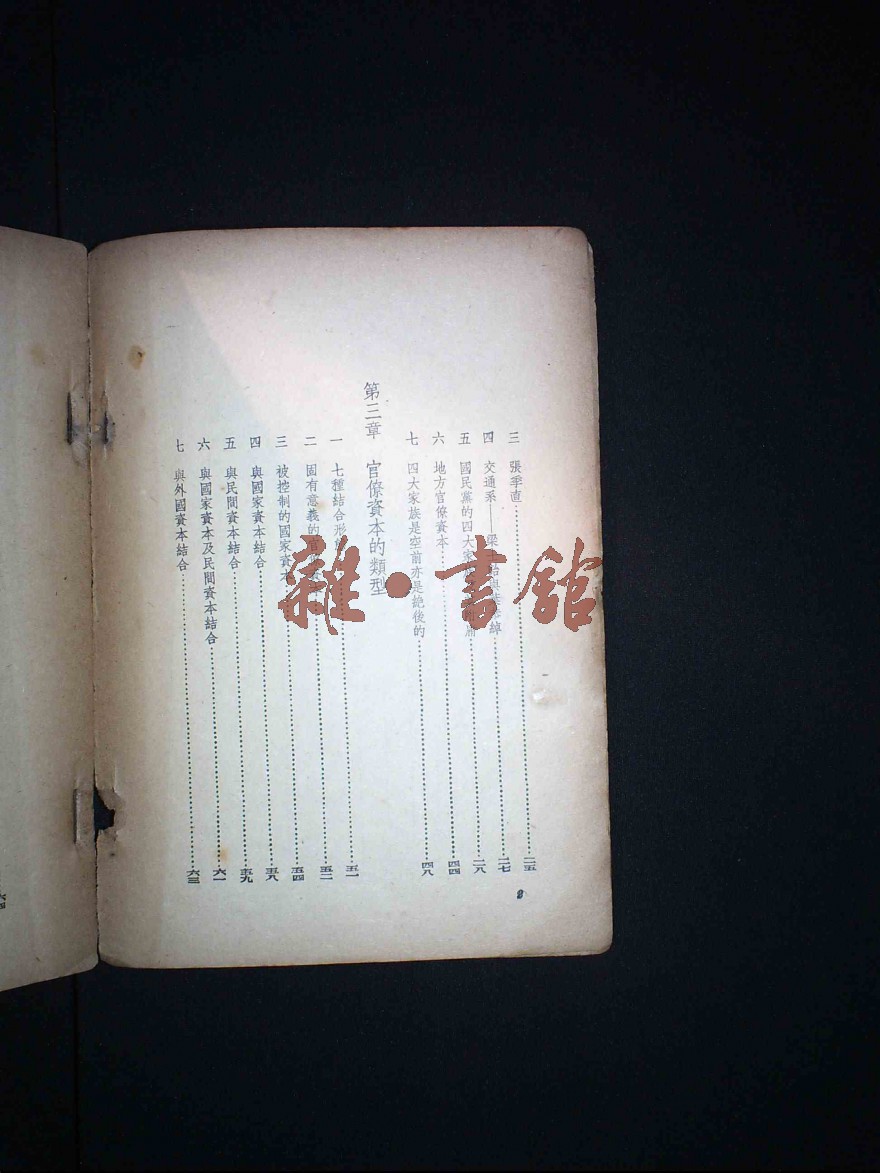 三 張季直 二五
四 交通系——梁 與 綽 二七
五 國民黨的四大家 二八
六 地方官僚資本 四四
七 四大家族是空前亦是絕後的 四八
第三章 官僚資本的類型
一 七種結合形 五一
二 固有意義的官 五二
三 被控制的國家資本 五四
四 與國家資本結合 五八
五 與民間資本結合 五九
六 與國家資本及民間資本結合 六一
七 與外國資本結合 六三
雜·書館